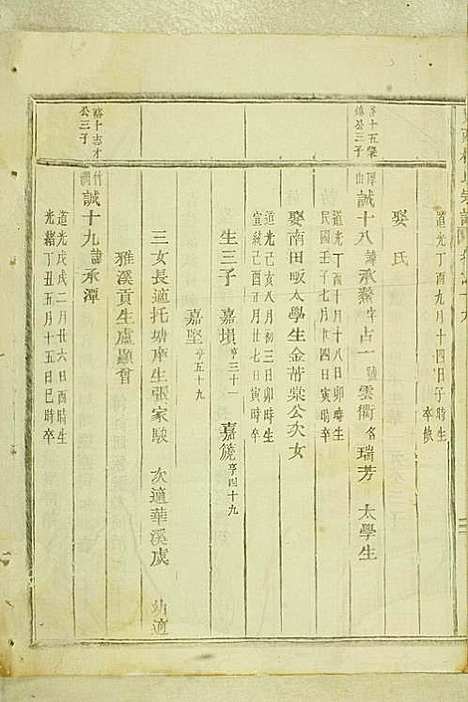 道光丁酉九月十四日子時生
卒缺
娶氏
誠十八諱承繁字占一號雲衢名瑞芳 太學生
道光丁酉十月十八日卯時生
民國壬子七月廿八日寅時卒
娶南田畈太學生金芾棠公次女
道光己亥八月初三日卯時生
宣統己酉五月廿七日寅時卒
生三子 嘉塤亨三十一 嘉篪亨四十九
嘉堅亨五十九
三女長適托塘庠生張家駿 次適華溪虞 幼適
雅溪貢生盧顯曾
公三子
誠十九諱承潭
道光戊戌二月廿六日時生
光緒丁丑五月十五日巳時卒